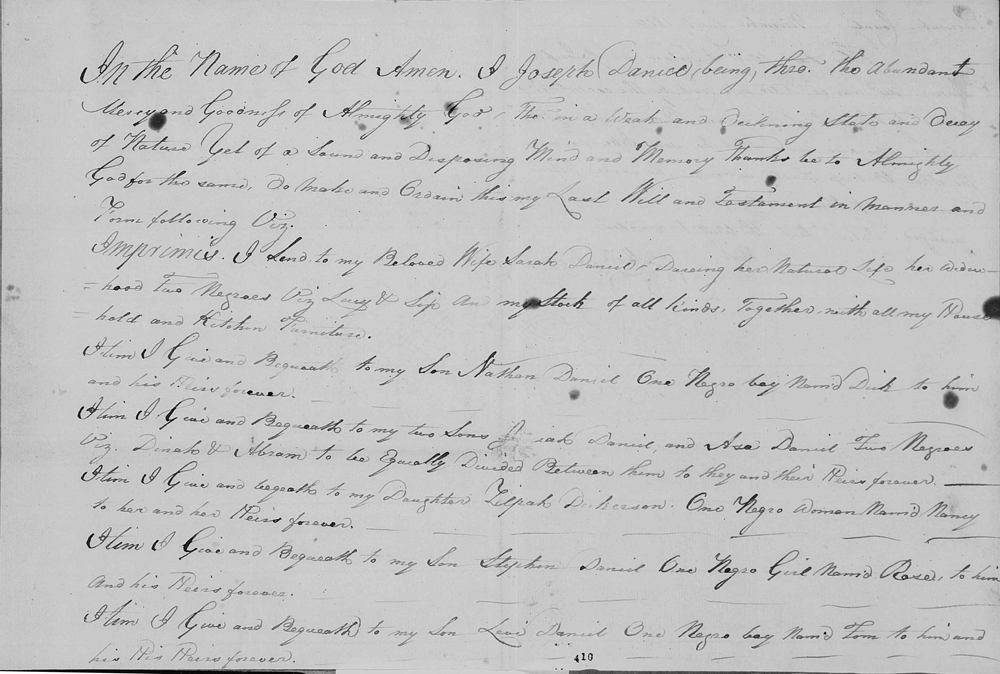 In the Name of God Amen. I Joseph Daniel, being, thro. the abundant
Mercy and Goodness of Almighty God, Tho. in a Weak and Declining State and Decay
of Nature Yet of a Sound and Disposing Mind and Memory thanks be to Almighty
God for the same, Do make and Ordain this my Last Will and Testament in manner and
Form following Viz.
Imprimis. I Lend to my Beloved Wife Sarah Daniel, Dureing her Natural Life her widow-
=hood two Negroes Viz Lucy & Sip my Stock of all kinds, Together with all my House
=hold and Kitchen Furniture.
Itim I Give and Bequeath to my Son Nathan Daniel One Negro boy Nam'd Dick to him
and his Heirs forever.
Itim I Give and Bequeath to my two Sons Daniel, and Asa Daniel Two Negroes
Viz. Dinah & Abram to be Equally Divided Between them to they and their Heirs forever.
Itim I Give and beqeath to my Daughter Zilpah Dickerson. One Negro Woman Nam'd Nancy
to her and her Heirs forever.
Itim I Give and Bequeath to my Son Stephen Daniel One Negro Girl Nam'd Rose, to him
and his Heirs forever.
Itim I Give and Bequeath to my Son Levi Daniel One Negro boy Nam'd Tom to him and
his His Heirs forever.
410